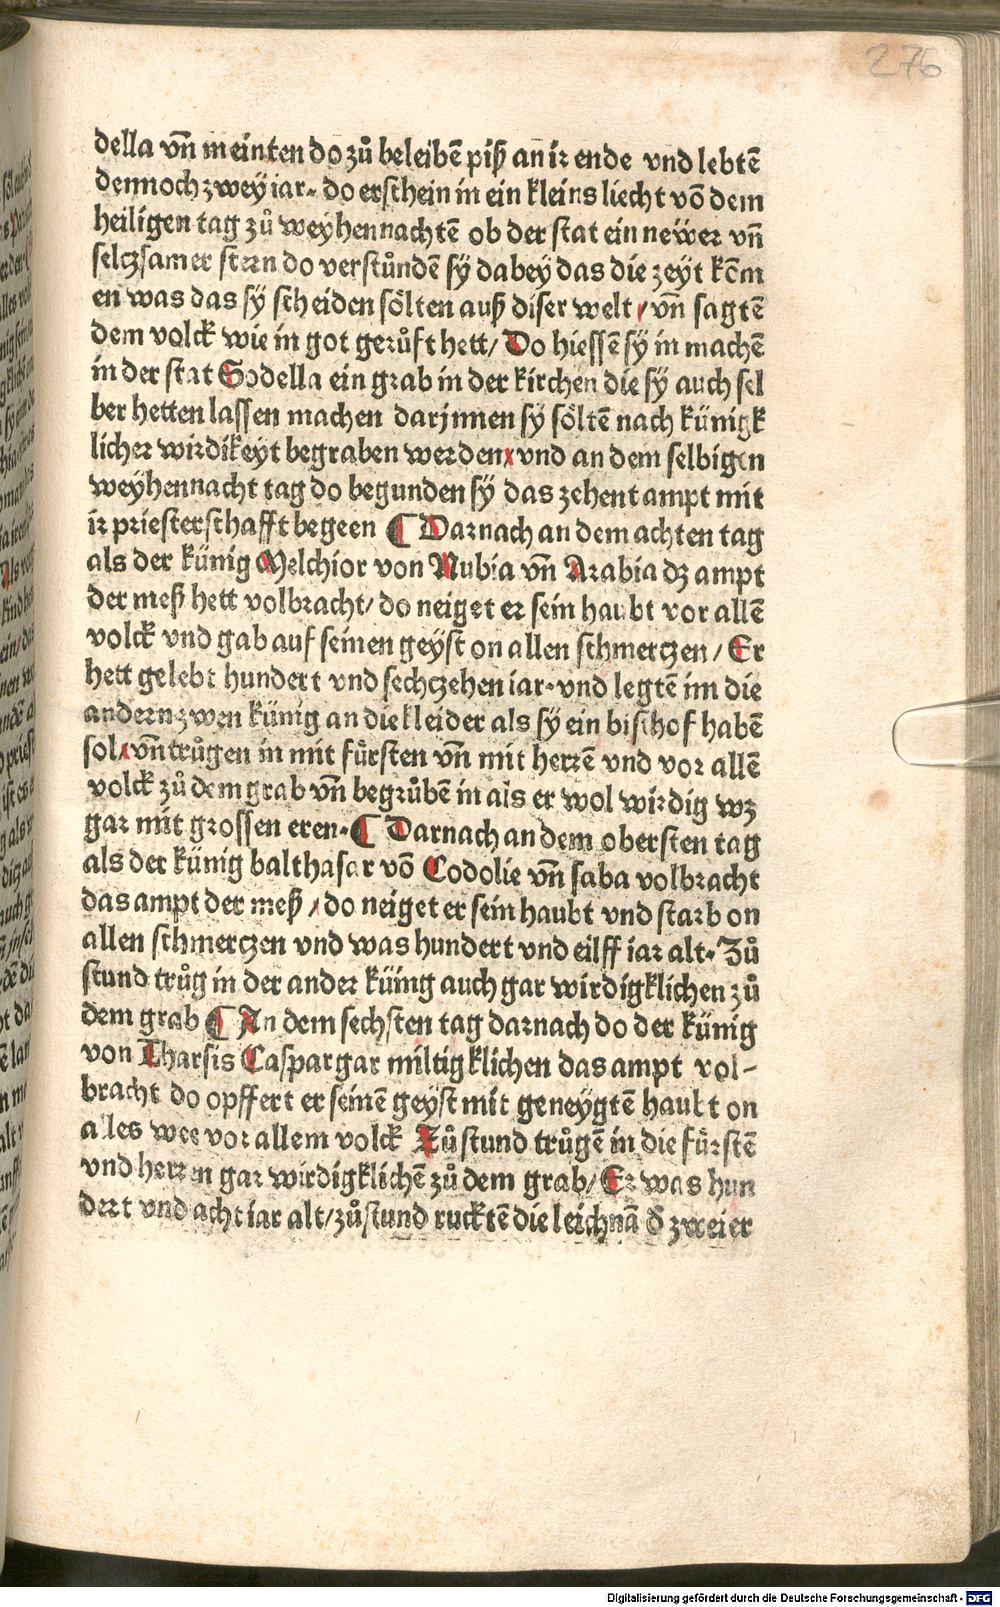 276
della vñ meinten do zů beleibẽ piß an ir ende vnd lebtẽ
dennoch zwey iar. do erschein in ein kleins liecht võ dem
heiligen tag zů weyhennachtẽ ob der stat ein newer vñ
selczsamer stern do verstůndẽ sy dabey das die zeyt kẽm
en was das sy scheiden sölten auß diser welt / vñ sagtẽ
dem volck wie in got gerůft hett / Do hiessẽ sy in machẽ
in der stat Sodella ein grab in der kirchen die sy auch sel
ber hetten lassen machen darjnnen sy söltẽ nach künigk
licher wirdikeyt begraben werden / vnd an dem selbigen
weyhennacht tag do begunden sy das zehent ampt mit
ir priesterschafft begeen ¶ Darnach an dem achten tag
als der künig Melchior von Nubia vñ Arabia dz ampt
der meß hett volbracht / do neiget er sein haubt vor allẽ
volck vnd gab auf seinen geyst on allen schmerczen / Er
hett gelebt hundert vnd sechczehen iar. vnd legtẽ im die
andern zwen künig an die kleider als sy ein bischof habẽ
sol / vñ trůgen in mit fürsten vñ mit herrẽ vnd vor allẽ
volck zů dem grab vñ begrůbẽ in als er wol wirdig wz
gar mit grossen eren. ¶ Darnach an dem obersten tag
als der künig balthasar võ Codolie vñ saba volbracht
das ampt der meß / do neiget er sein haubt vnd starb on
allen schmerczen vnd was hundert vnd eilff iar alt. Zů
stund trůg in der ander küinig auch gar wirdigklichen zů
dem grab ¶ An dem sechsten tag darnach do der künig
von Tharsis Caspar gar miltigklichen das ampt vol-
bracht do opffert er seinẽ geyst mit geneygtẽ haubt on
alles wee vor allem volck Zů stund trůgẽ in die fürstẽ
vnd herren gar wirdigklichẽ zů dem grab / Er was hun
dert vnd acht iar alt / zů stund rucktẽ die leichnã đ zweier
Digitalisierung gefördert durch die Deutsche Forschungsgemeinschaft - DFG